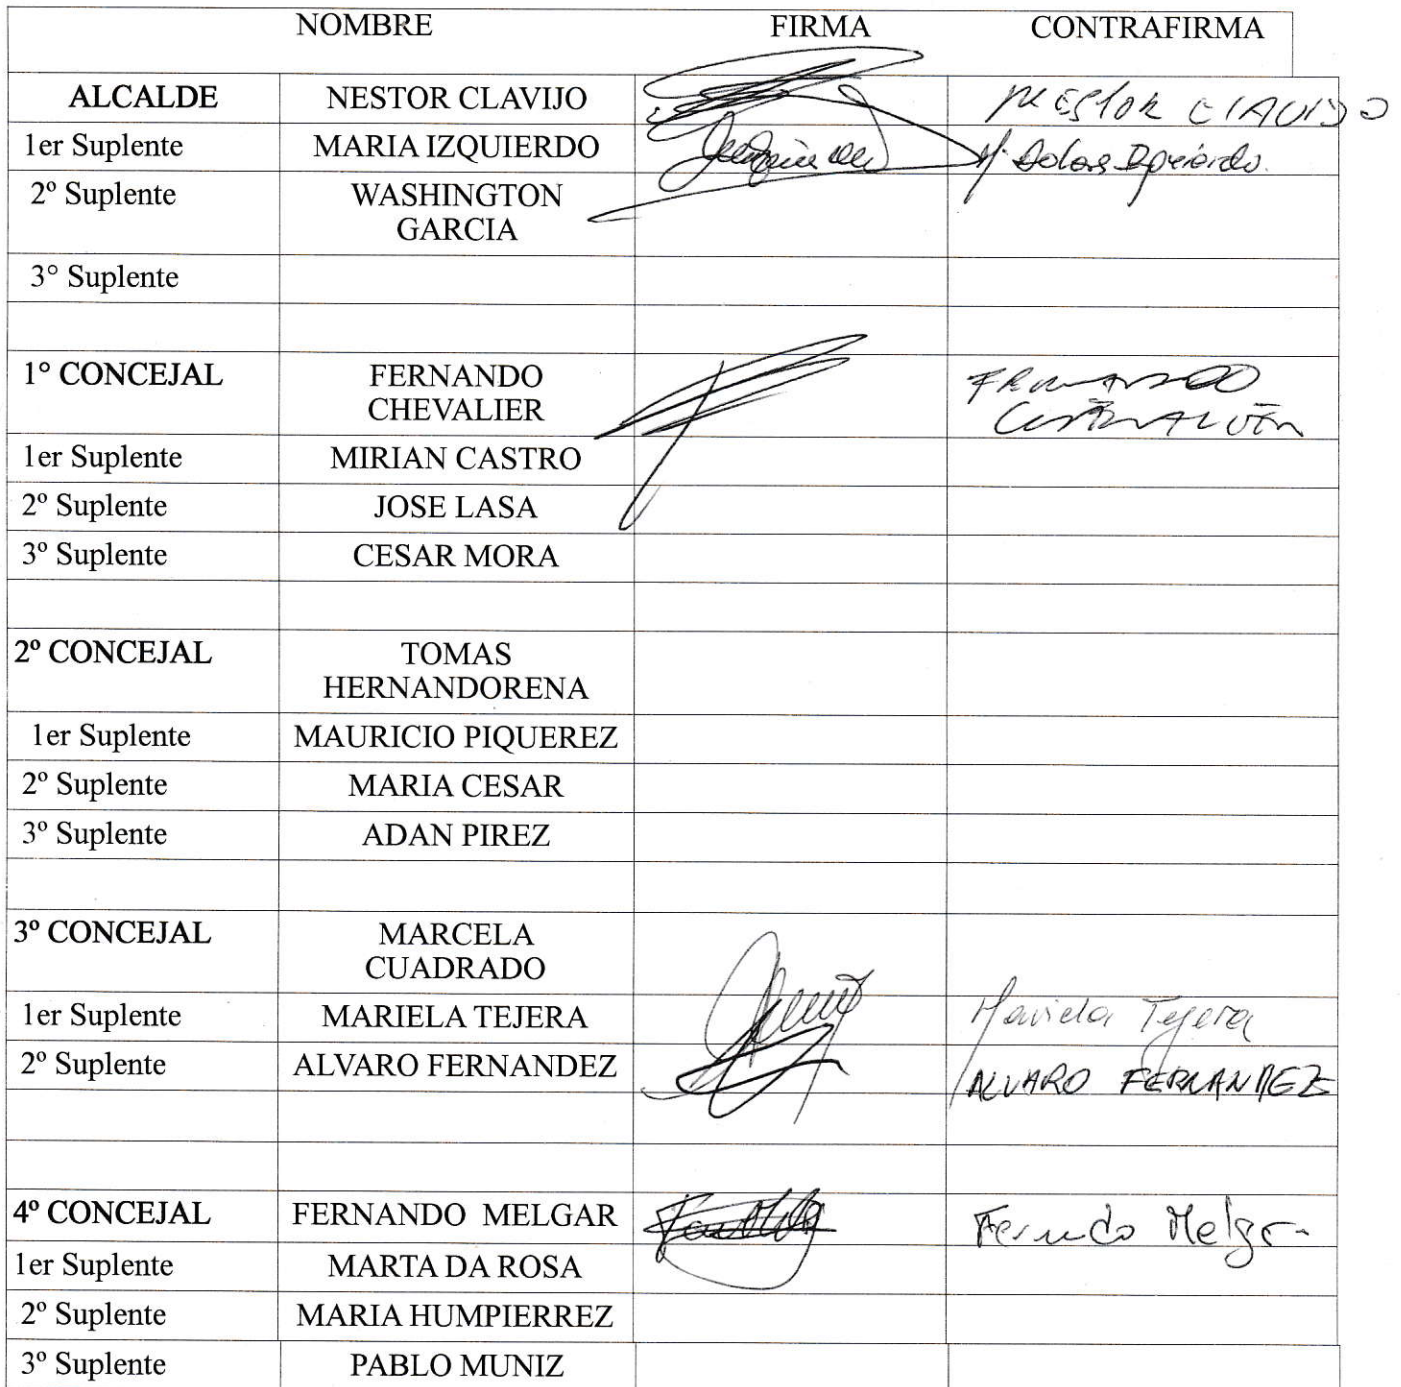 NOMBRE FIRMA CONTRAFIRMA
ALCALDE NESTOR CLAVIJO NESTOR CLAVIJO
1er Suplente MARIA IZQUIERDO
2º Suplente WASHINGTON
GARCIA
3° Suplente
1° CONCEJAL FERNANDO
CHEVALIER
1er Suplente MIRIAN CASTRO
2º Suplente JOSE LASA
3º Suplente CESAR MORA
2º CONCEJAL TOMAS
HERNANDORENA
1er Suplente MAURICIO PIQUEREZ
2º Suplente MARIA CESAR
3º Suplente ADAN PIREZ
3º CONCEJAL MARCELA
CUADRADO
1er Suplente MARIELA TEJERA Mariela Tejera
2º Suplente ALVARO FERNANDEZ ALVARO FERNANDEZ
4º CONCEJAL FERNANDO MELGAR Fernando Melgar
1er Suplente MARTA DA ROSA
2º Suplente MARIA HUMPIERREZ
3º Suplente PABLO MUNIZ